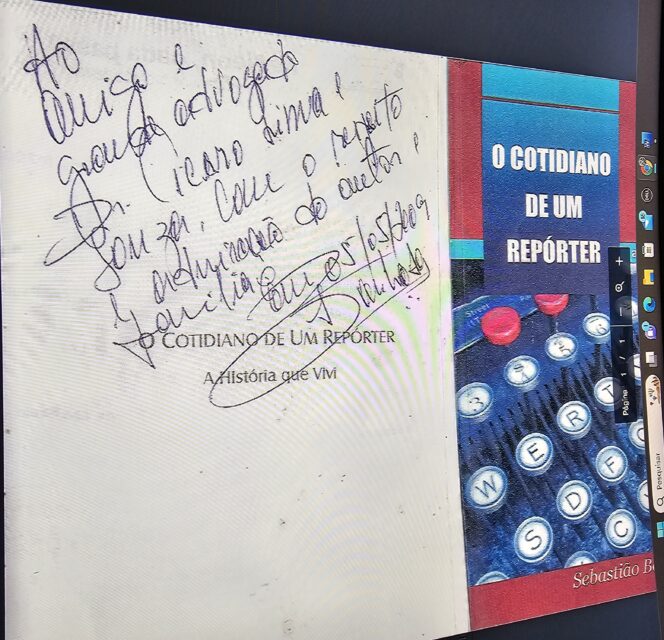 Ao
amigo e
grande advogado
Dr. Icaro Lima e
Souza, com o respeito
e admiração do autor e
família. Em, 05/05/2009
O COTIDIANO DE UM REPÓRTER
A HISTÓRIA QUE VIVI
O COTIDIANO
DE UM
REPÓRTER
Street
3 4 5 6
W E R T
S D F
C
Sebastião
Página 1 / 1
Pesquisar